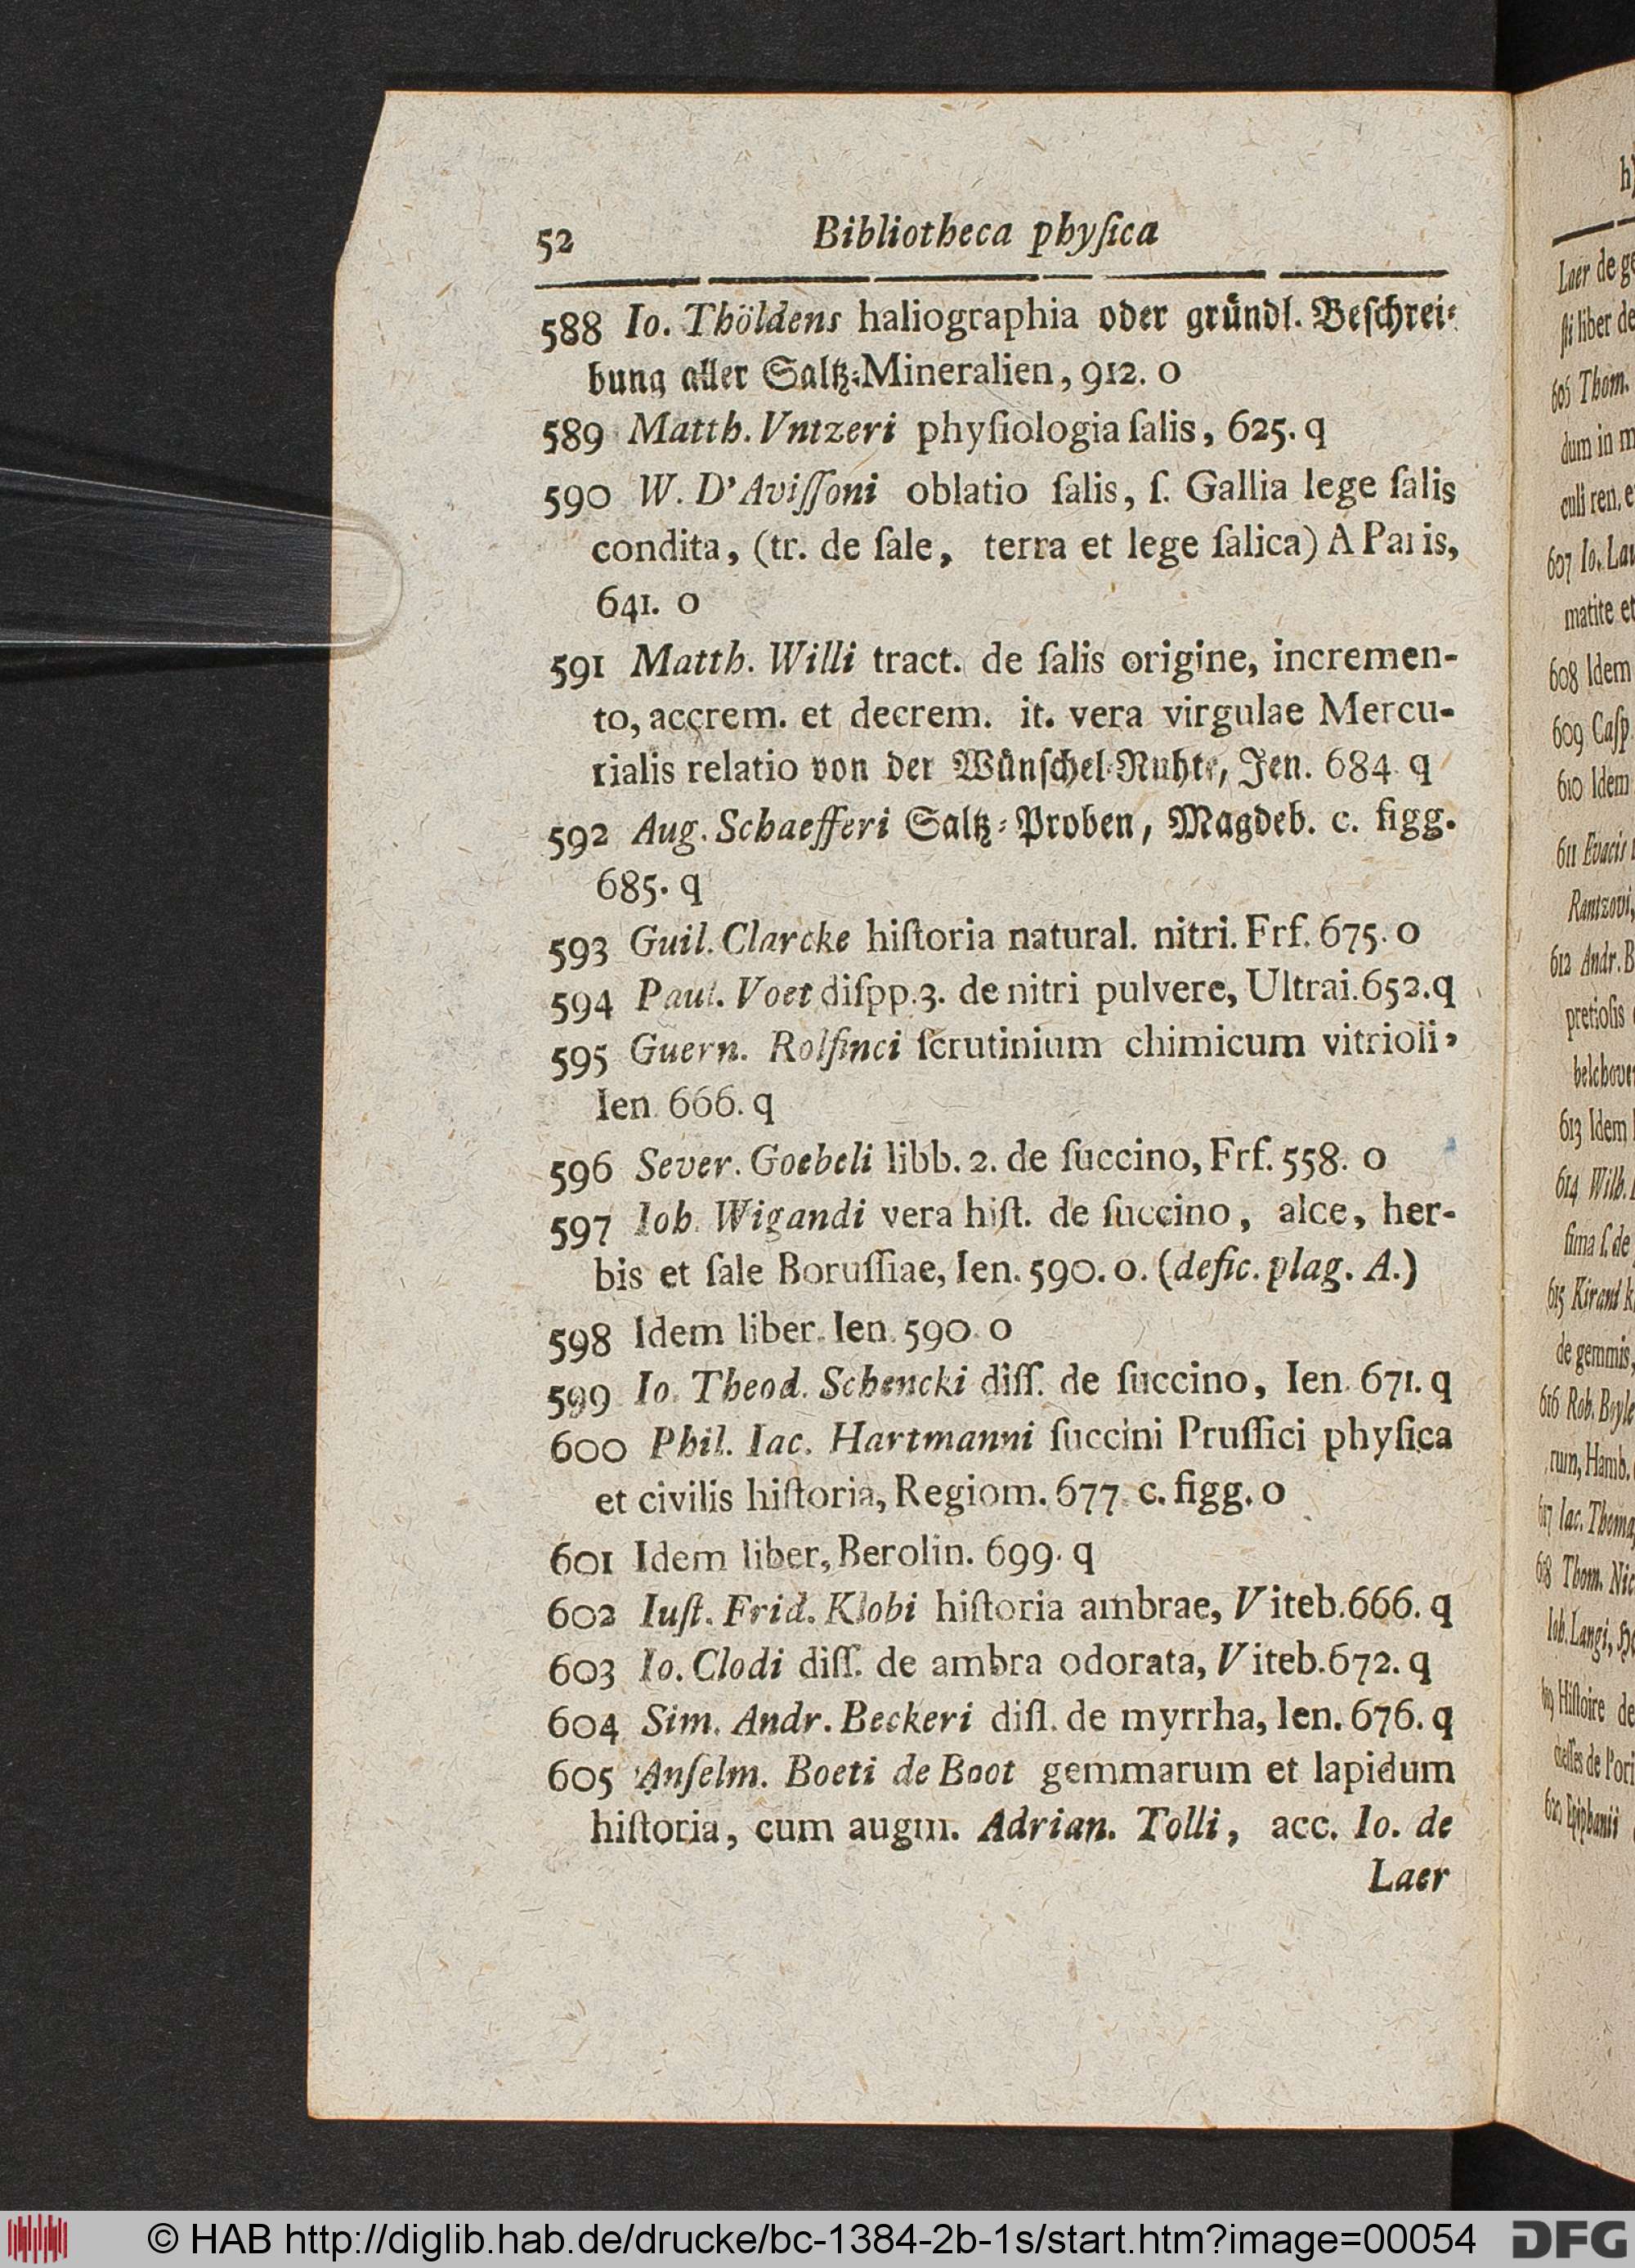 52 Bibliotheca phyſica
588 Io. Thöldens haliographia oder gründl. Beſchrei-
bung aller Saltz-Mineralien, 912. o
589 Matth. Vntzeri phyſiologia ſalis, 625. q
590 W. D'Aviſſoni oblatio ſalis, ſ. Gallia lege ſalis
condita, (tr. de ſale, terra et lege ſalica) A Paris,
641. o
591 Matth. Willi tract. de ſalis origine, incremen-
to, accrem. et decrem. it. vera virgulae Mercu-
rialis relatio von der Wünſchel-Ruhte, Jen. 684. q
592 Aug. Schaefferi Saltz-Proben, Magdeb. c. figg.
685. q
593 Guil. Clarcke hiſtoria natural. nitri. Frf. 675. o
594 Paul. Voet diſpp. 3. de nitri pulvere, Ultrai. 652. q
595 Guern. Rolfinci ſcrutinium chimicum vitrioli,
Ien 666. q
596 Sever. Goebeli libb. 2. de ſuccino, Frf. 558. o
597 Ioh. Wigandi vera hiſt. de ſuccino, alce, her-
bis et ſale Boruſſiae, Ien. 590. o. (defic. plag. A.)
598 Idem liber. Ien. 590. o
599 Io. Theod. Schencki diſſ. de ſuccino, Ien. 671. q
600 Phil. Iac. Hartmanni ſuccini Pruſſici phyſica
et civilis hiſtoria, Regiom. 677. c. figg. o
601 Idem liber, Berolin. 699. q
602 Iuſt. Frid. Klobi hiſtoria ambrae, Viteb. 666. q
603 Io. Clodi diſſ. de ambra odorata, Viteb. 672. q
604 Sim. Andr. Beckeri diſſ. de myrrha, Ien. 676. q
605 Anſelm. Boeti de Boot gemmarum et lapidum
hiſtoria, cum augm. Adrian. Tolli, acc. Io. de
Laer
Laer de
ſti liber de
606 Thom.
dum in
culi ren.
607 Io. Lau
matite et
608 Idem
609 Caſp.
610 Idem
611 Evacis
Rantzovi,
612 Andr. B
pretioſis
613 Idem
614 Wilh.
ſima ſ. de
615 Kirani
de gemmis,
616 Rob. Boyle
rum, Hamb.
617 Iac. Thoma
618 Thom. Nic
Ioh. Langi,
619 Hiſtoire de
620 Epiphanii
© HAB http://diglib.hab.de/drucke/bc-1384-2b-1s/start.htm?image=00054
DFG